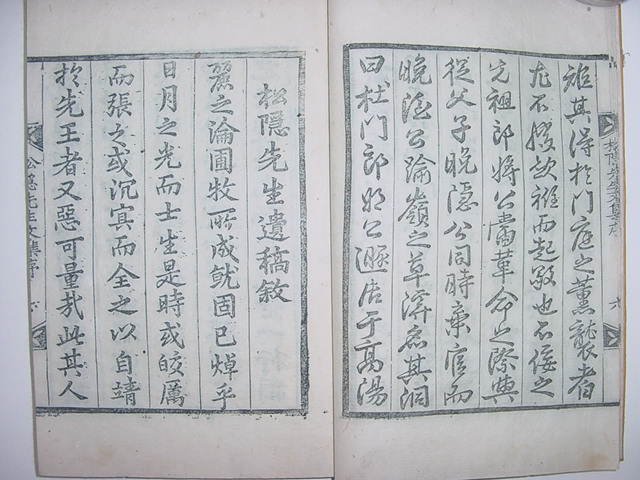 雖其得於門庭之薰襲者
尤不
而起敬也不佞之
先祖郎將公當革命之際與
從父子晩隱公同時棄官而
晩隱公踰嶺之草溪
其洞
曰杜門郎將公遯居于高陽
松隱先生文集序
松隱先生遺稿敘
麗之淪圃牧所成就固已焯乎
日月之光而士生是時或皎厲
而張之或沉冥而全之以自靖
於先王者又惡可量哉此其人
松隱先生文集序